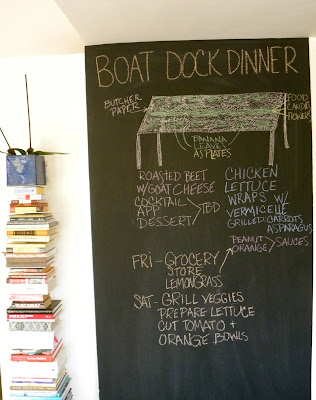 BOAT DOCK DINNER
BUTCHER
PAPER
FOOD
CANDLES
FLOWERS
BANANA
LEAVES
AS PLATES
ROASTED BEET
W/GOAT CHEESE
COCKTAIL
APP
DESSERT
TBD
CHICKEN
LETTUCE
WRAPS W/
VERMICELLE
GRILLED: CARROTS
ASPARAGUS
PEANUT
ORANGE
SAUCES
FRI - GROCERY
STORE
LEMONGRASS
SAT - GRILL VEGGIES
PREPARE LETTUCE
CUT TOMATO +
ORANGE BOWLS